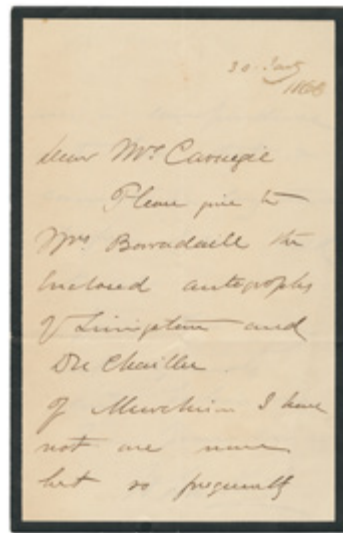 30 Jany
dear Mrs. Carnegie
Please give to
Mrs. Borradaile the
Enclosed autographs
of Livingstone and
Du Chaillu.
Of Murchison I have
not one more
but so frequently